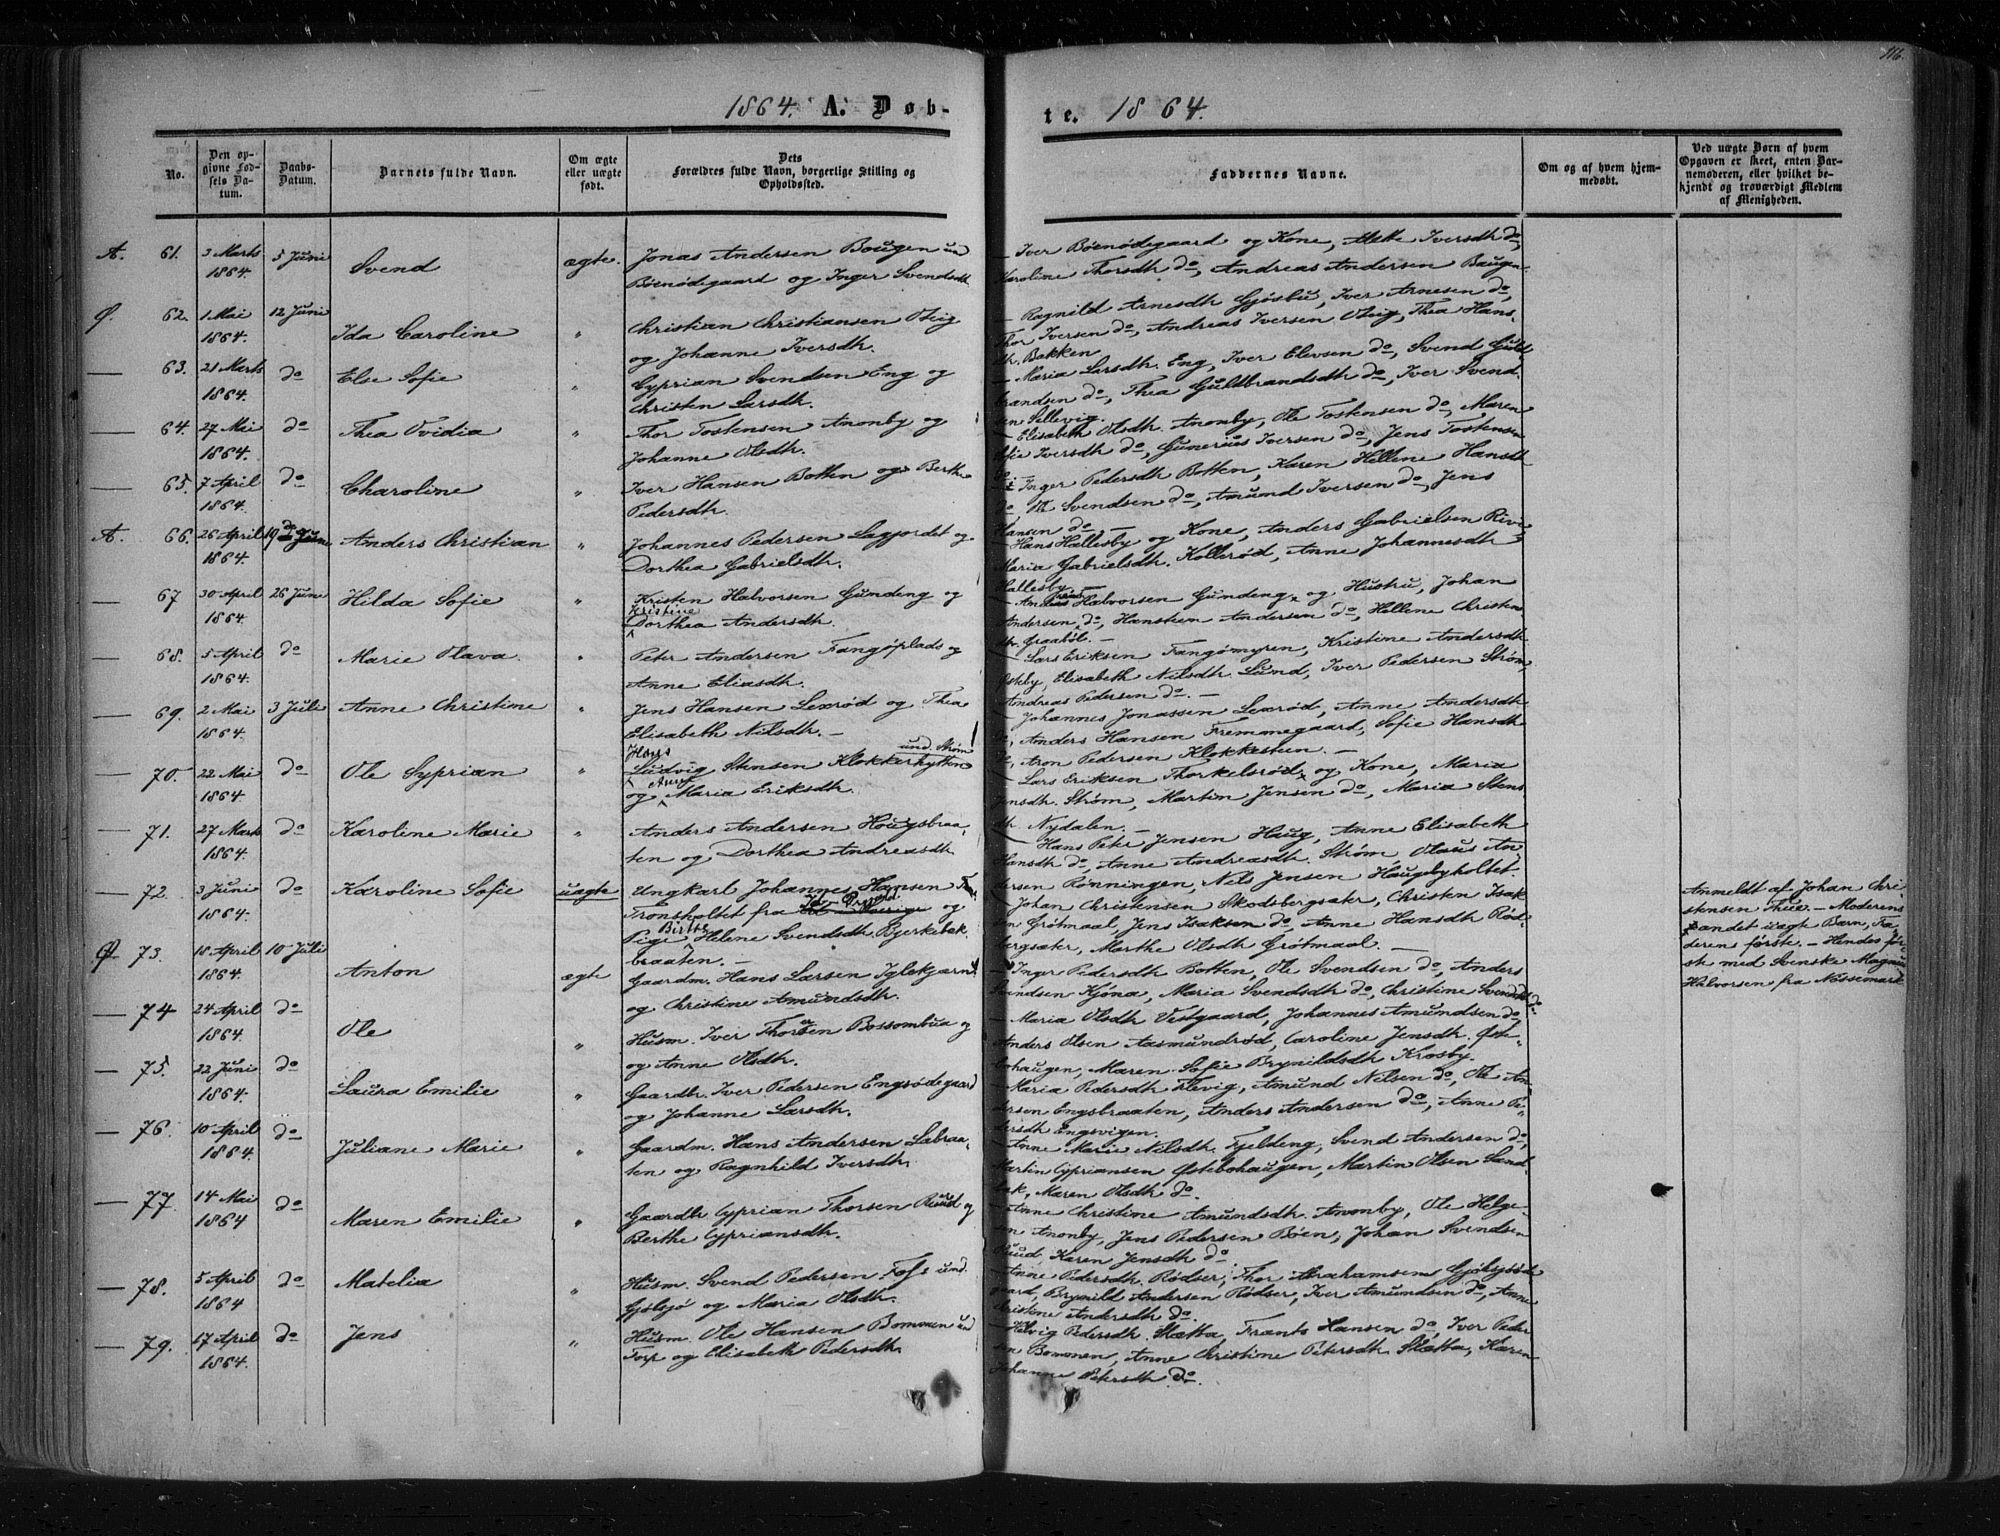 116.
1864. A. Døb-
te. 1864.
No.
Den op-
givne Fød-
sels Da-
tum.
Daabs-
Datum.
Barnets fulde Navn.
Om ægte
eller uægte
født.
Dets
Forældres fulde Navn, borgerlige Stilling og
Opholdssted.
Faddernes Navne.
Om og af hvem hjem-
medøbt.
Ved uægte Børn af hvem
Opgaven er skeet, enten Bar-
nemoderen, eller hvilket be-
kjendt og troværdigt Medlem
af Menigheden.
A. 61. 3 Marts 1864. 5 Juni Svend ægte. Jonas Andersen Bougen und
Böenödegaard og Inger Svendsdt.
— Iver Böenödegaard og Kone, Iversdtr do,
Karoline Thorsdtr do, Andreas Andersen Baugen
Ø. 62. 1 Mai 1864. 12 Juni Ida Caroline " Christian Christiansen Oteig
og Johanne Iversdtr.
— Ragnild Arnesdtr Gjøsbu, Iver Arnesen do,
Thor Iversen do, Andreas Iversen Oteig, Thea Hans-
dtr. Bakken
— 63. 21 Marts 1864. do Else Sofie " Cyprian Svendsen Eng og
Christen Larsdtr.
— Maria Larsdtr. Eng, Iver Elevsen do, Svend Guld-
brandsen do, Thea Guldbrandsdtr do, Iver Svend-
sen Sellevig.
— 64. 27 Mai 1864. do Thea Ovidia " Thor Tostensen Anonby og
Johanne Olsdtr.
— Elisabeth Olsdtr. Anonby, Ole Tostensen do, Maren
Sofie Iversdtr do, Gunerius Iversen do, Jens Tostensen
do
— 65. 7 April 1864. do Charoline " Iver Hansen Botten og Berthe
Pedersdtr.
— Inger Pedersdtr Botten, Karen Hellene Hansdtr
do, Ole Svendsen do, Amund Iversen do, Jens
Hansen do, —
A. 66. 26 April 1864. 19 Juni Anders Christian " Johannes Pedersen Lagjordet og
Dorthea Gabrielsdtr.
— Hans Hallesby og Kone, Anders Gabrielsen
Maria Gabrielsdtr. Kollerød, Anne Johannesdtr
Hallesby
— 67 30 April 1864. 26 Juni Hilda Sofie " Kristen Halvorsen Gundeng og
Kristine
Dorthea Andersdtr.
— Halvorsen Gundeng og Hustru, Johan
Andersen, do, Hansteen Andersen do, Hellene Christen
dtr. Graabøl. —
— 68. 5 April 1864. do Marie Olava. " Peter Andersen Fangøplads og
Anne Eliasdtr.
— Lars Eriksen Fangømyren, Kristine Andersdtr
Østeby, Elisabeth Nilsdtr. Lund, Iver Pedersen Strøm
Andreas Pedersen do. —
— 69. 2 Mai 1864. 3 Juli Anne Christine " Jens Hansen Lexrød og Thea
Elisabeth Nilsdtr. —
Johannes Jonassen Lexrød, Anne Andersdtr
do, Anders Hansen Fremmegaard, Sofie Hansdtr
do, Aron Pedersen Klokkesteen. —
— 70. 22 Mai 1864. do Ole Syprian " Hans
Ludvig Stensen Klokkerhytten und. Strøm
og Maria Eriksdtr.
Lars Eriksen Thorkelsrød og Kone, Maria
Jensdtr. Strøm, Martin Jensen do, Maria Stens
dtr Nydalen. —
— 71. 27 Marts 1864. do Karoline Marie " Anders Andersen Hougsbraa-
ten og Dorthea Andreasdtr.
Hans Peter Jensen Haug, Anne Elisabeth
Hansdtr do, Anne Andreasdtr. Strøm, Olaus An-
dersen Rønningen, Nils Jensen Haugbyholtet.
— 72. 3 Juni 1864. do Karoline Sofie uægte Ungkarl Johannes Hansen
Tronsholtet fra og
Pige Birthe Helene Svendsdtr. Bjerkebæk-
braaten. —
Johan Christensen Skodsbergsakr, Christen Isak
sen Grøtmaal, Jens Isaksen do, Anne Hansdtr Rød-
bergsakr, Marthe Olsdtr Grøtmaal —
Anmeldt af Johan Chri-
stensen Thue. — Moderens
andet uægte Barn, Fa-
derens første. — Hendes før-
ste med Svenske Magnus
Halvorsen fra Nössemark
Ø. 73. 18 April 1864. 10 Juli Anton ægte Gaardm. Hans Larsen Iglekjærn
og Christine Amundsdtr.
— Inger Pedersdtr Botten, Ole Svendsen do, Anders
Svendsen Kjøna, Maria Svendsdtr do, Christine Svendsdtr do.
— 74 24 April 1864. do Ole " Husm. Iver Thorsen Bossombua og
og Anne Olsdtr.
— Maria Olsdtr Vestgaard, Johannes Amundsen do,
Anders Olsen Aasmundrød, Caroline Jensdtr. Øst-
bohaugen, Maren Sofie Brynildsdtr Krosby.
— 75. 22 Juni 1864. do Laura Emilie " Gaardbr. Iver Pedersen Engsødegaard
og Johanne Larsdtr.
— Maria Pedersdtr Flevig, Amund Nilsen do, Ole An-
dersen Engsbraaten, Anders Andersen do, Anne Pe-
dersdtr Engsvigen.
— 76. 10 April 1864. do Juliane Marie " Gaardm. Hans Andersen Labraa-
ten og Ragnhild Iversdtr.
— Anne Marie Nilsdtr. Fjeldeng, Svend Andersen do,
Martin Cypriansen Østebohaugen, Martin Olsen Sand-
bæk, Maren Olsdtr do.
— 77. 14 Mai 1864 do Maren Emilie " Gaardbr. Cyprian Thorsen Ruud og
Berthe Cypriansdtr.
— Anne Christine Amundsdtr. Anonby, Ole Helge-
sen Anonby, Jens Pedersen Böen, Johan Svendsen
Ruud, Karen Jensdtr do
— 78. 5 April 1864 do Matelia " Husm. Svend Pedersen und.
Gjölsjö og Maria Olsdtr.
Anne Pedersdtr. Rødser, Thor Abrahamsen Gjölsjöød-
gaard, Brynild Andersen Rødser, Iver Amundsen do, Anne
Christine Andersdtr do.
— 79. 17 April 1864. do Jens " Husm. Ole Hansen Bommen und
Torp og Elisabeth Pedersdtr.
— Helvig Pedersdtr. Slætta, Frants Hansen do, Iver Peder
sen Bommen, Anne Christine Petersdtr. Slætta, Karen
Johanne Petersdtr do.